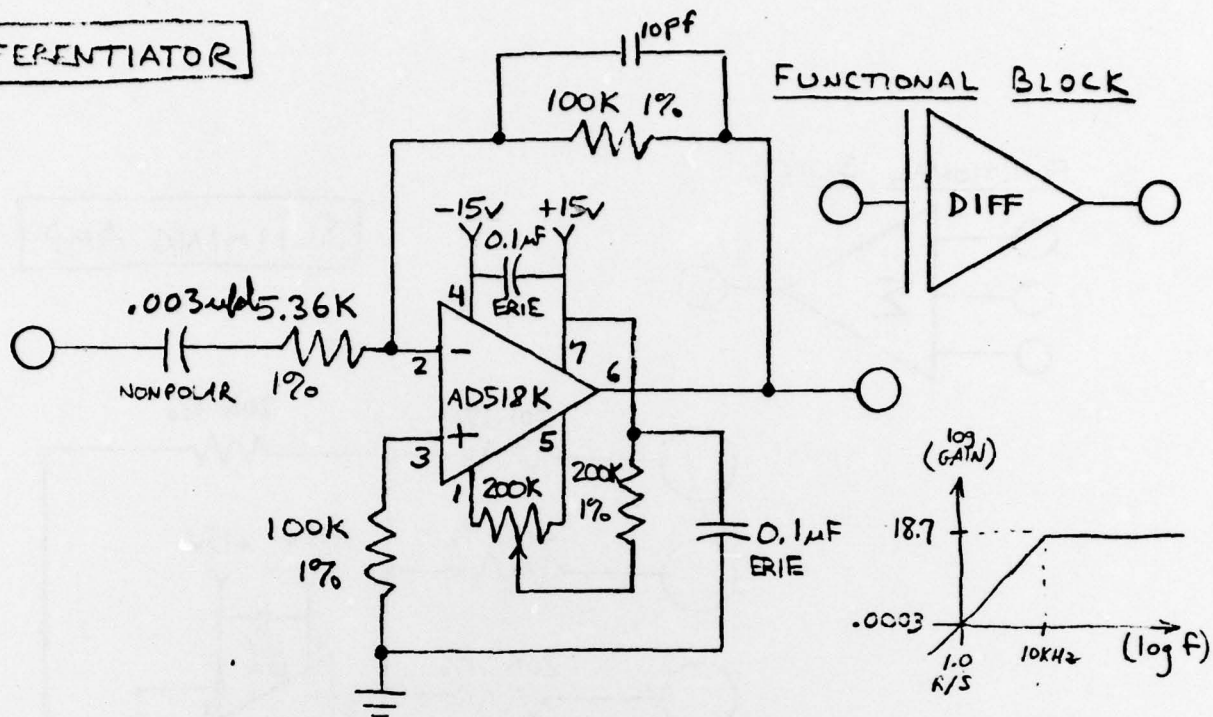 FERENTIATOR
10pf
100K 1%
FUNCTIONAL BLOCK
DIFF
-15v +15v
0.1µF
ERIE
.003 5.36K
NONPOLAR 1%
4
7
2 -
6
AD518K
3 +
5
1
200K
200K
1%
100K
1%
0.1µF
ERIE
(log GAIN)
18.7
.0003
1.0
R/S
10KHz
(log F)